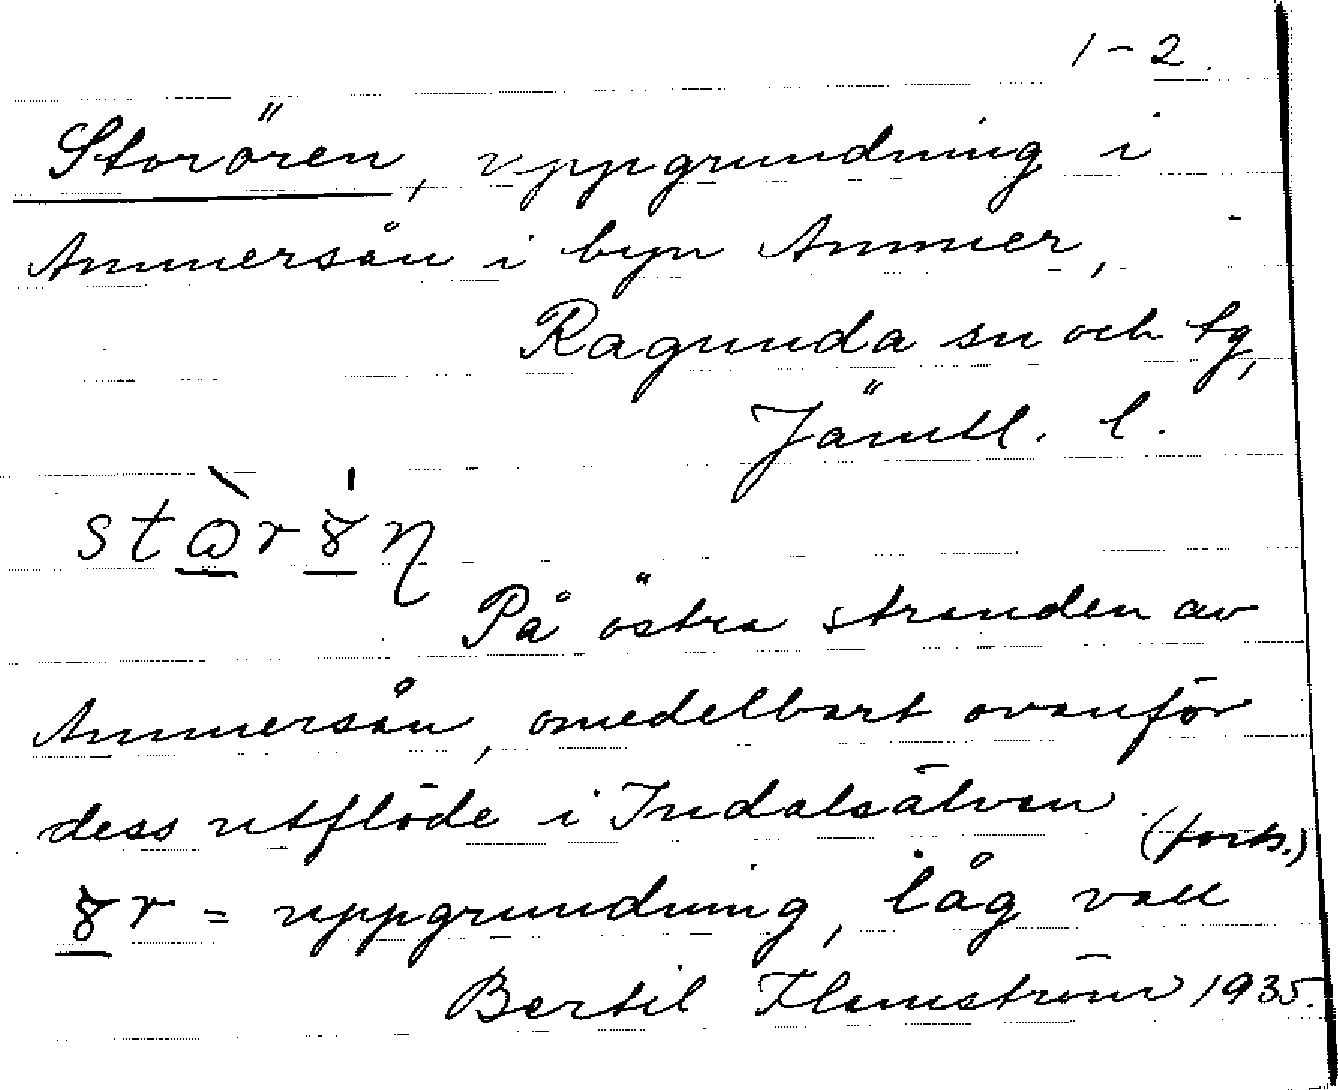 1-2.
Storören, uppgrundning i
Ammersån i byn Ammer,
Ragunda sn och tg,
Jämtl. l.
På östra stranden av
Ammersån, omedelbart ovanför
dess utflöde i Indalsälven
(forts.)
= uppgrundning, låg vall
Bertil Flemström 1935.